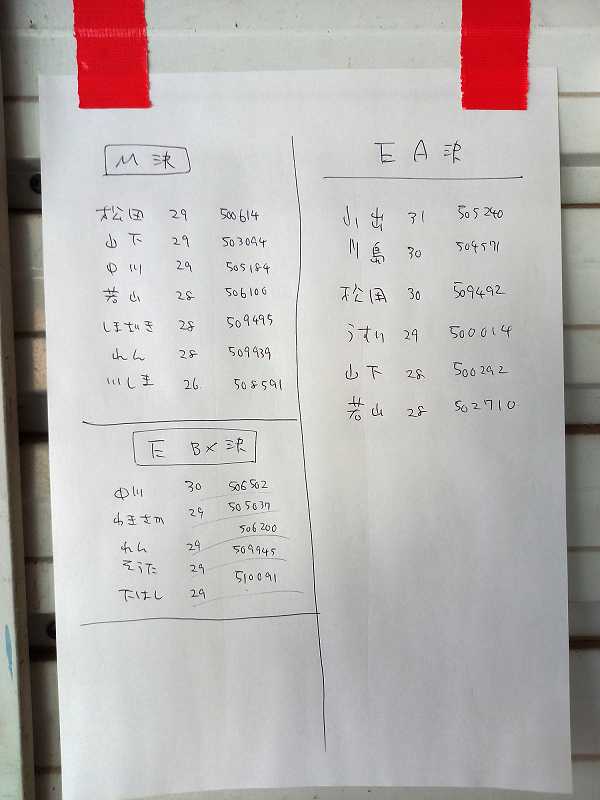 M 決
松田 29 500614
山下 29 503094
中川 29 505184
若山 28 506100
しまざき 28 509495
れん 28 509939
川しま 26 508591
E Bメ決
中川 30 506502
わきさか 29 505037
れん 29 506200
そうた 29 509945
たはし 29 510091
E A 決
小出 31 505240
川島 30 504571
松田 30 509492
うすい 29 500014
山下 28 500292
若山 28 502710